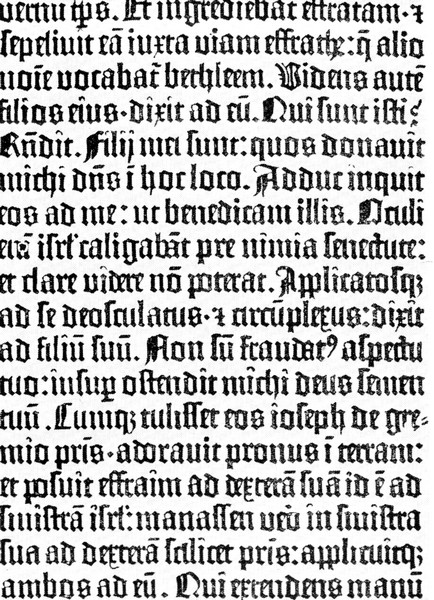 vernū tp̄s. Et ingrediebar effratam·⁊
sepeliuit eā iuxta viam effrathe: q̄ alio
noīe vocabat᷑ bethleem. Videns autē
filios eius·dixit ad eū. Qui sunt isti?
Rn̄dit. Filij mei sunt: quos donauit
michi dn̄s ī hoc loco. Adduc inquit
eos ad me: ut benedicam illis. Oculi
em̄ isrl' caligabāt pre nimia senectute:
et clare videre nō poterat. Applicatosqꝫ
ad se deosculatus·⁊ circūplexus: dixit
ad filiū suū. Non sū fraudatꝰ aspectu
tuo: insuꝑ ostendit michi deus semen
tuū. Cumqꝫ tulisset eos ioseph de gre-
mio pr̄is·adorauit pronus ī terram:
et posuit effraim ad dexterā suā id ē ad
sinistrā isrl': manassen vero in sinistra
sua ad dexterā scilicet pr̄is: applicuitqꝫ
ambos ad eū. Qui extendens manū